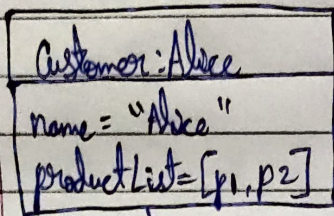 Customer:Alice
name = "Alice"
productList=[p1, p2]